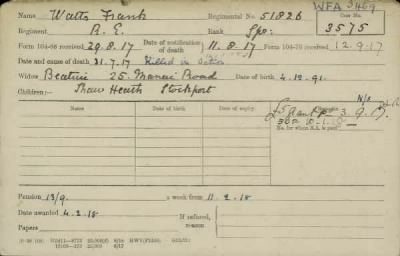 WFA 3469
Name Watts Frank Regimental No. 51826 Case No.
Regiment R.E. Rank Spr: 3575
Form 104-88 received 29.8.17 Date of notification of death 11.8.17 Form 104-76 received 12.9.17
Date and cause of death 31.7.17 Killed in Action
Widow Beatrice 25. Road Date of birth 4.12.91.
Children:— Shaw Heath Stockport N/s
Date of birth. Date of expiry. £5 Grant 3.9.17
No. for whom S.A. is paid
Pension 13/9 a week from 11.2.18
Date awarded 4.2.18 If refused, reason
Papers